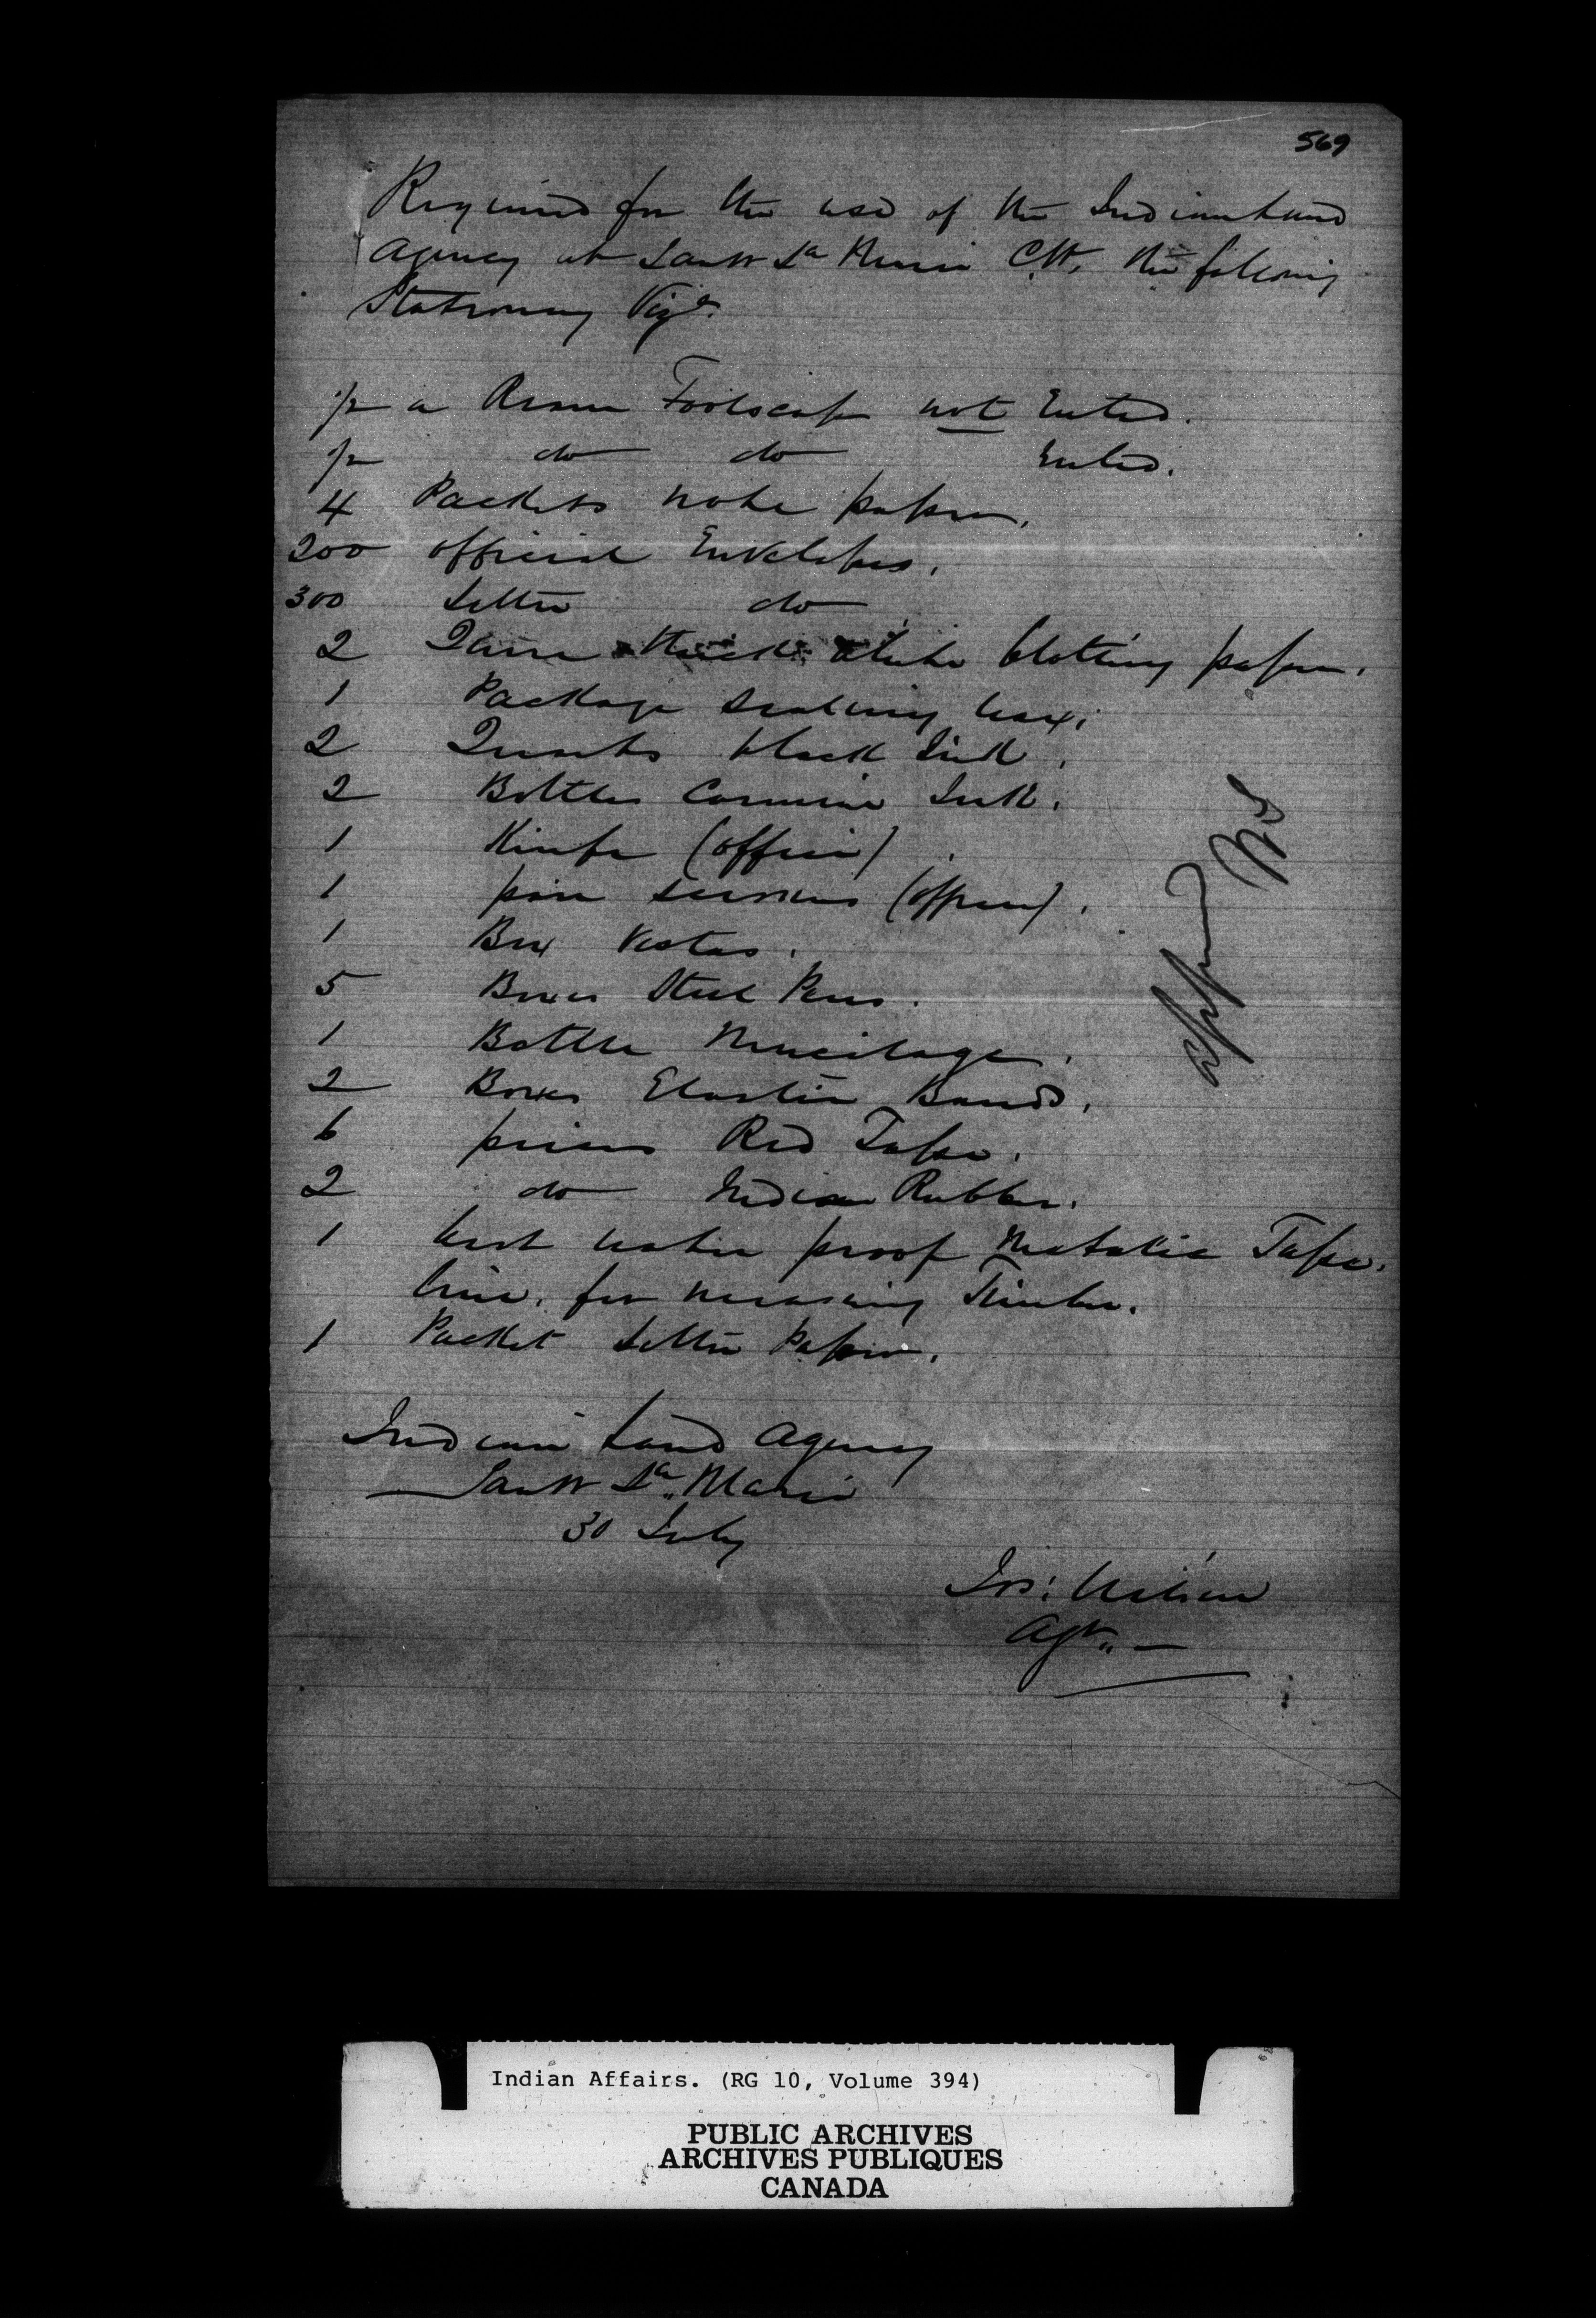 569
Required for the use of the Indian Land
Agency at Sault Ste Marie C.W. the following
Stationery Vizt.
1/2 a Ream Foolscap not Ruled.
1/2 do do Ruled.
4 Packets note paper.
200 official Envelopes.
300 Letter do
2 Quire thick white blotting paper.
1 Package Sealing wax.
2 Quarts black Ink.
2 Bottles Carmine Ink.
1 Knife (office)
1 pair scissors (office).
1 Box Vestas.
5 Boxes Steel Pens.
1 Bottle Mucilage.
2 Boxes Elastic Bands.
6 pieces Red Tape.
2 do Indian Rubber.
1 best water proof Metalic Tape.
line. for measuring Timber.
1 Packet Letter Paper.
Indian Land Agency
Sault Ste Marie
30 July
Jos: Wilson
Agt.
Indian Affairs. (RG 10, Volume 394)
PUBLIC ARCHIVES
ARCHIVES PUBLIQUES
CANADA